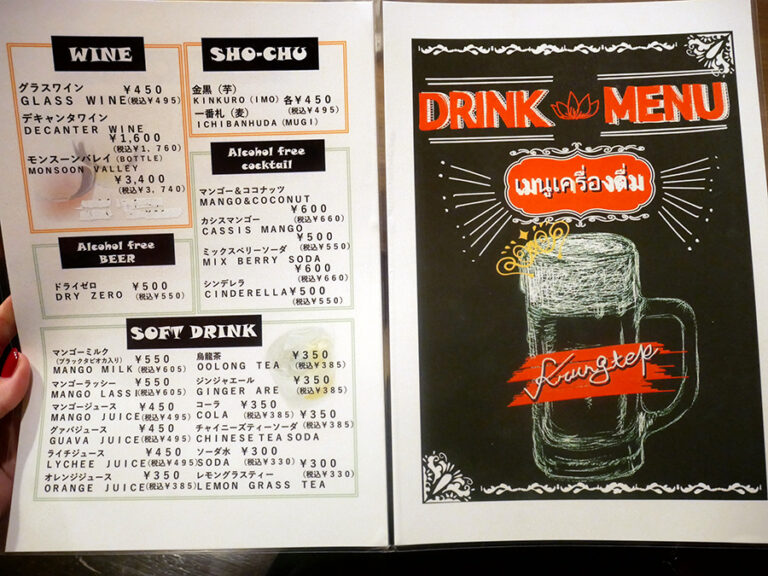 WINE
グラスワイン ¥450
GLASS WINE(税込¥495)
デキャンタワイン
DECANTER WINE
¥1,600
(税込¥1,760)
モンスーンバレイ(BOTTLE)
MONSOON VALLEY
¥3,400
(税込¥3,740)
Alcohol free
BEER
ドライゼロ ¥500
DRY ZERO (税込¥550)
SHO-CHU
金黒(芋)
KINKURO(IMO) 各¥450
一番札(麦) (税込¥495)
ICHIBANHUDA(MUGI)
Alcohol free
cocktail
マンゴー&ココナッツ
MANGO&COCONUT
¥600
カシスマンゴー (税込¥660)
CASSIS MANGO
¥500
ミックスベリーソーダ (税込¥550)
MIX BERRY SODA
¥600
シンデレラ (税込¥660)
CINDERELLA ¥500
(税込¥550)
SOFT DRINK
マンゴーミルク
(ブラックタピオカ入り) ¥550
MANGO MILK(税込¥605)
マンゴーラッシー ¥550
MANGO LASSI(税込¥605)
マンゴージュース ¥450
MANGO JUICE(税込¥495)
グァバジュース ¥450
GUAVA JUICE(税込¥495)
ライチジュース ¥450
LYCHEE JUICE(税込¥495)
オレンジジュース ¥350
ORANGE JUICE(税込¥385)
烏龍茶 ¥350
OOLONG TEA (税込¥385)
ジンジャエール ¥350
GINGER ARE (税込¥385)
コーラ ¥350
COLA (税込¥385) ¥350
チャイニーズティーソーダ (税込¥385)
CHINESE TEA SODA
ソーダ水 ¥300
SODA (税込¥330) ¥300
レモングラスティー (税込¥330)
LEMON GRASS TEA
DRINK MENU
เมนูเครื่องดื่ม
Krungtep